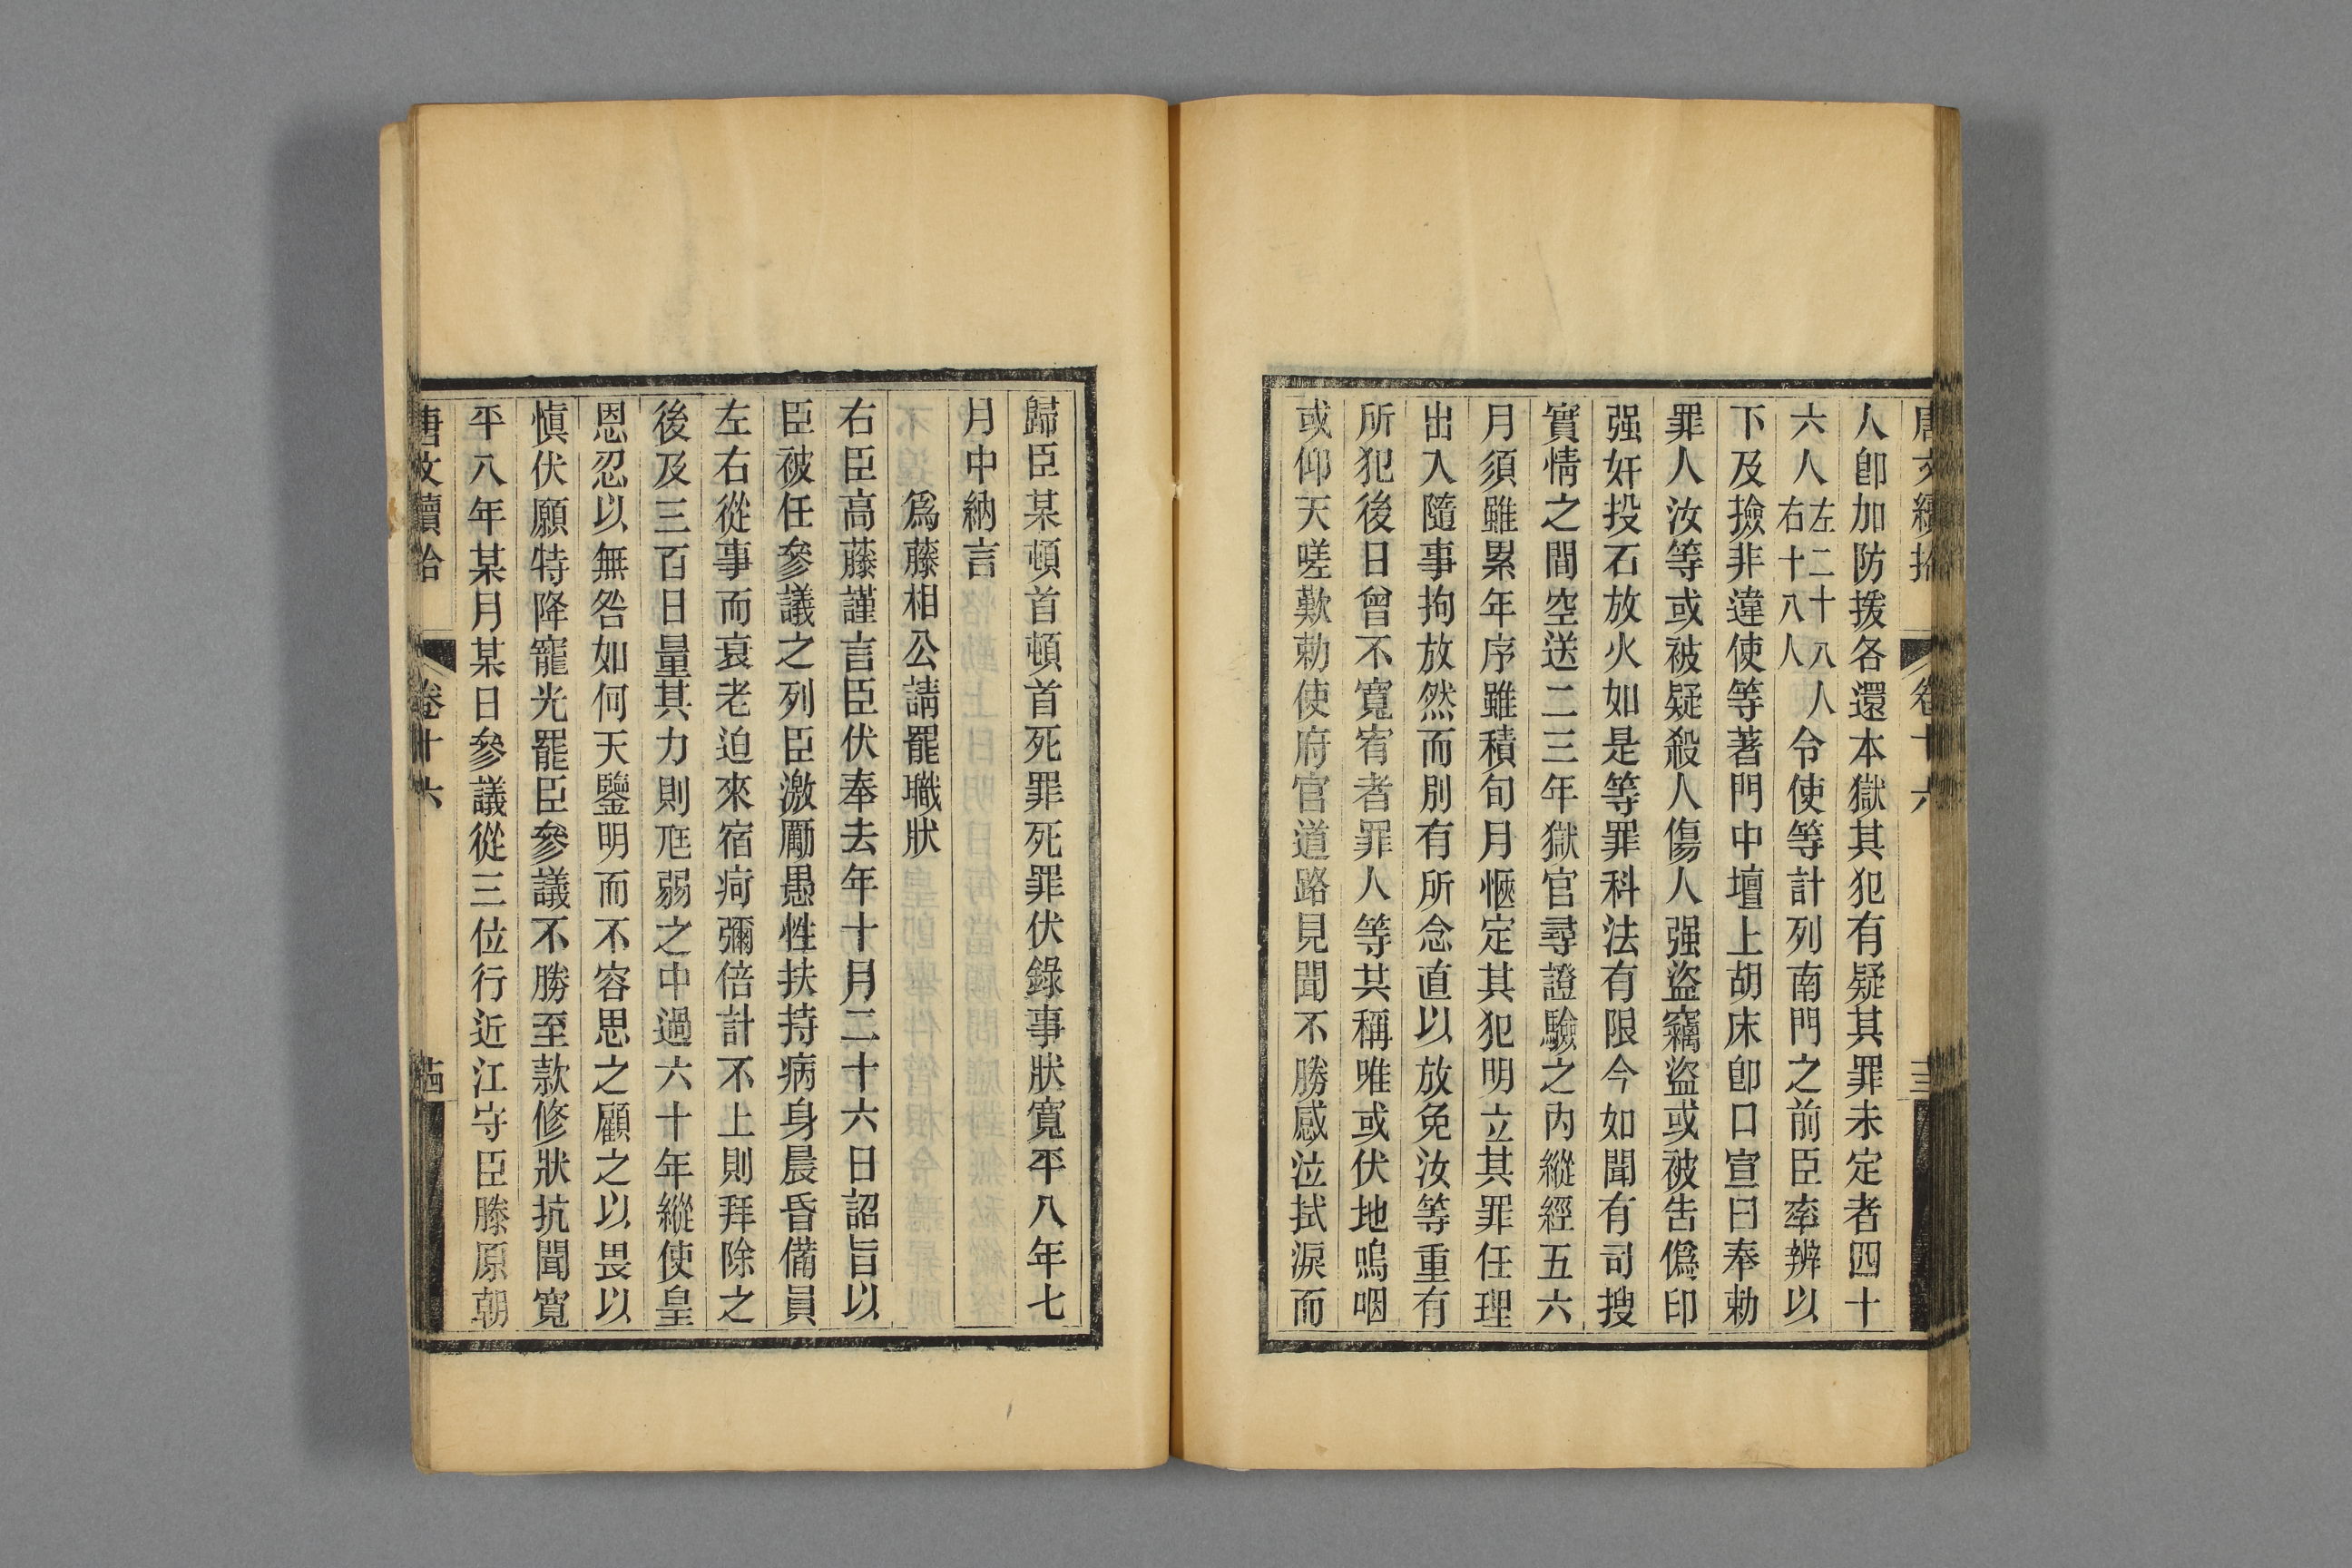 唐文續拾 卷十六 三
人卽加防援各還本獄其犯有疑其罪未定者四十
六人左二十八人右十八人令使等計列南門之前臣率辨以
下及撿非違使等著門中壇上胡床卽口宣曰奉勅
罪人汝等或被疑殺人傷人强盜竊盜或被告僞印
强奸投石放火如是等罪科法有限今如聞有司搜
實情之間空送二三年獄官尋證驗之內縱經五六
月須雖累年序雖積旬月愜定其犯明立其罪任理
出入隨事拘放然而別有所念直以放免汝等重有
所犯後日曾不寬宥者罪人等共稱唯或伏地嗚咽
或仰天嗟歎勅使府官道路見聞不勝感泣拭淚而
歸臣某頓首頓首死罪死罪伏錄事狀寬平八年七
月中納言
爲藤相公請罷職狀
右臣高藤謹言臣伏奉去年十月二十六日詔旨以
臣被任參議之列臣激勵愚性扶持病身晨昏備員
左右從事而衰老迫來宿疴彌倍計不上則拜除之
後及三百日量其力則尫弱之中過六十年縱使皇
恩忍以無咎如何天鑒明而不容思之顧之以畏以
愼伏願特降寵光罷臣參議不勝至款修狀抗聞寬
平八年某月某日參議從三位行近江守臣滕原朝
唐文續拾 卷十六